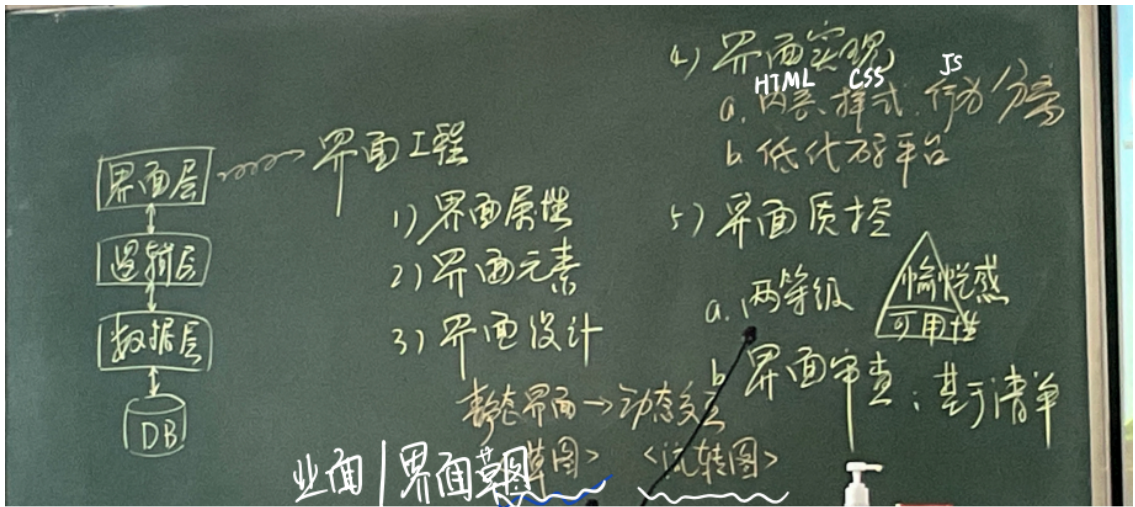 界面层
逻辑层
数据层
DB
界面工程
1) 界面属性
2) 界面元素
3) 界面设计
静态界面→动态交互
草图> <流转图>
业面|界面草图
4) 界面实现
HTML CSS JS
a. 内容、样式、行为分离
b. 低代码平台
5) 界面质控
a. 两等级
愉悦感
可用性
b 界面审查:基于清单